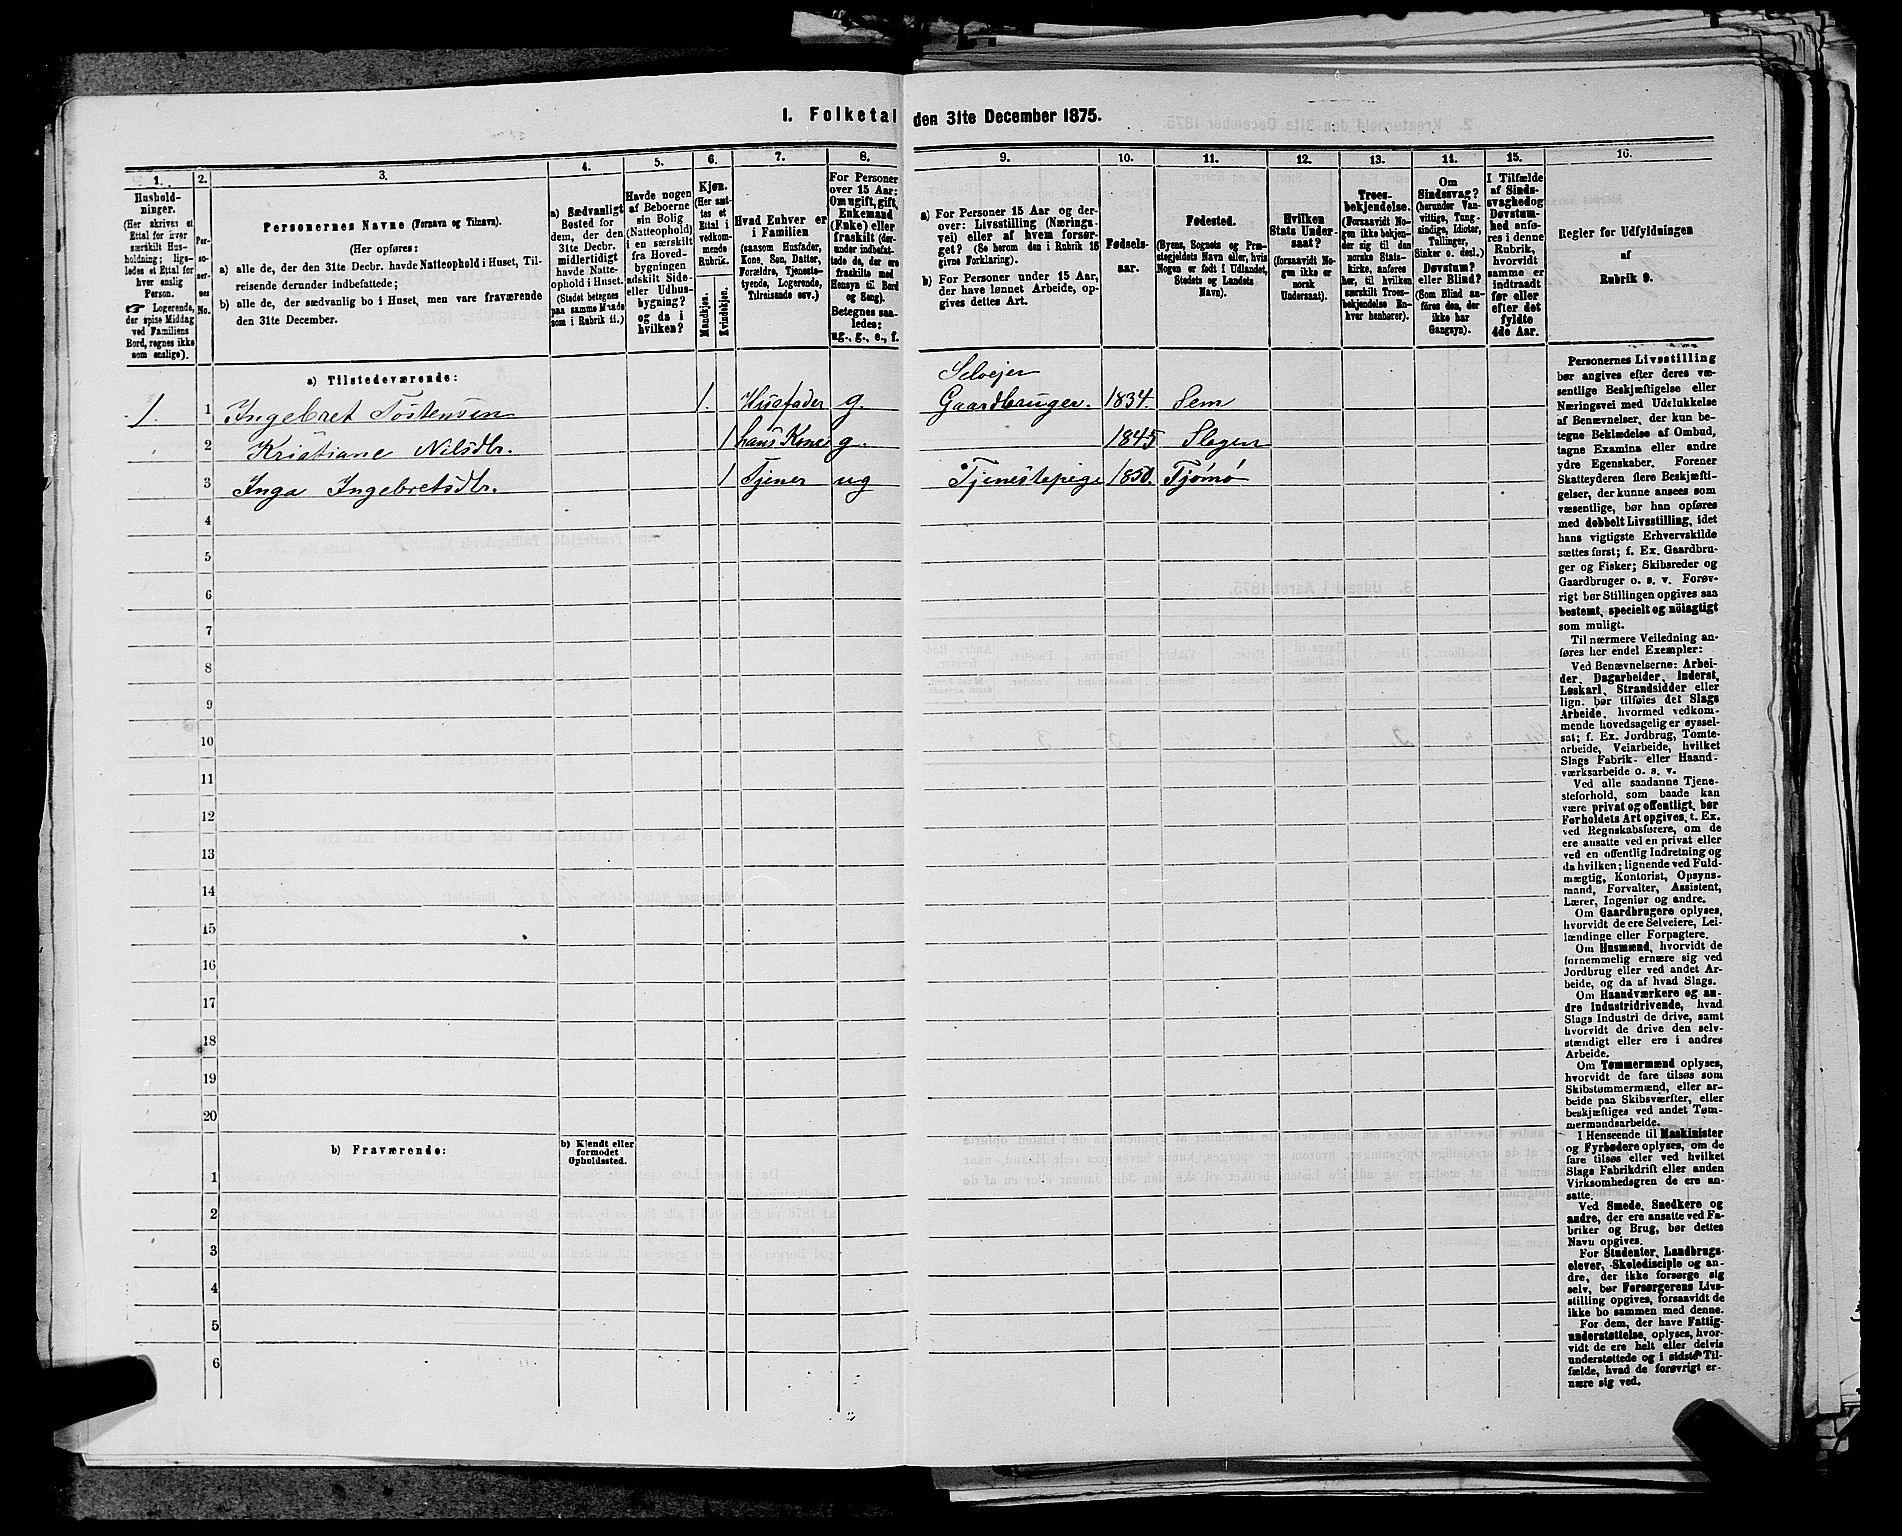 1. Folketal den 31te December 1875.
1. 2. 3. 4. 5. 6. 7. 8. 9. 10. 11. 12. 13. 14. 15. 16.
Hushold-
ninger.
(Her skrives et
Ettal for hver
særskilt Hus-
holdning; lige-
ledes et Ettal for
hver enslig
Person.
☞ Logerende,
der spise Middag
ved Familiens
Bord, regnes ikke
som enslige).
Per-
so-
ner-
nes
No.
Personernes Navne (Fornavn og Tilnavn).
(Her opføres:
a) alle de, der den 31te Decbr. havde Natteophold i Huset, Til-
reisende derunder indbefattede;
b) alle de, der sædvanlig bo i Huset, men vare fraværende
den 31te December.
a) Sædvanligt
Bosted for
dem, der den
31te Decbr.
midlertidigt
havde Natte-
ophold i Huset.
(Stedet betegnes
paa samme Maade
som i Rubrik 11.)
Havde nogen
af Beboerne
sin Bolig
(Natteophold)
i en særskilt
fra Hoved-
bygningen
adskilt Side-
eller Udhus-
bygning?
og da i
hvilken?
Kjøn.
(Her sæt-
tes et
Ettal i
vedkom-
mende
Rubrik.
Mandkjøn.
Kvindekjøn.
Hvad Enhver er
i Familien
(saasom Husfader,
Kone, Søn, Datter,
Forældre, Tjeneste-
tyende, Logerende,
Tilreisende osv.)
For Personer
over 15 Aar:
Om ugift, gift,
Enkemand
(Enke) eller
fraskilt (der-
under indbefat-
tede de, der ere
fraskilte med
Hensyn til Bord
og Seng).
Betegnes saa-
ledes:
ug., g., e., f.
a) For Personer 15 Aar og der-
over: Livsstilling (Nærings-
vei) eller af hvem forsør-
get? (Se herom den i Rubrik 16
givne Forklaring).
b) For Personer under 15 Aar,
der have lønnet Arbeide, op-
gives dettes Art.
Fødsels-
aar.
Fødested.
(Byens, Sognets og Præ-
stegjeldets Navn eller, hvis
Nogen er født i Udlandet,
Stedets og Landets
Navn).
Hvilken
Stats Under-
saat?
(forsaavidt No-
gen ikke er
norsk
Undersaat).
Troes-
bekjendelse.
(Forsaavidt No-
gen ikke bekjen-
der sig til den
norske Stats-
kirke, anføres
her, til hvilken
særskilt Troes-
bekjendelse En-
hver henhører).
Om
Sindssvag?
(herunder Van-
vittige, Tung-
sindige, Idioter,
Tullinger,
Sinker o. desl.)
Døvstum?
eller Blind?
(Som Blind an-
føres den, der
ikke har
Gangsyn).
I Tilfælde
af Sinds-
svaghed og
Døvstum-
hed anfø-
res i denne
Rubrik,
hvorvidt
samme er
indtraadt
før eller
efter det
fyldte
4de Aar.
Regler for Udfyldningen
af
Rubrik 9.
a) Tilstedeværende:
Selvejer
1. 1 Ingebret Tostensen 1. Husfader g. Gaardbruger. 1834. Sem
2 Kristiane Nilsdtr. 1 hans Kone g. 1845 Slagen
3 Inga Ingebretsdtr. 1 Tjener ug Tjenestepige 1850. Tjømø
4
5
6
7
8
9
10
11
12
13
14
15
16
17
18
19
20
b) Fraværende:
b) Kjendt eller
formodet
Opholdssted.
1
2
3
4
5
6
Personernes Livsstilling
bør angives efter deres væ-
sentlige Beskjæftigelse eller
Næringsvei med Udelukkelse
af Benævnelser, der kun be-
tegne Beklædelse af Ombud,
tagne Examina eller andre
ydre Egenskaber. Forener
Skatteyderen flere Beskjæfti-
gelser, der kunne ansees som
væsentlige, bør han opføres
med dobbelt Livsstilling, idet
hans vigtigste Erhvervskilde
sættes først; f. Ex. Gaardbru-
ger og Fisker; Skibsreder og
Gaardbruger o. s. v. Forøv-
rigt bør Stillingen opgives saa
bestemt, specielt og nöiagtigt
som muligt.
Til nærmere Veiledning an-
føres her endel Exempler:
Ved Benævnelserne: Arbei-
der, Dagarbeider, Inderst,
Løskarl, Strandsidder eller
lign. bør tilføies det Slags
Arbeide, hvormed vedkom-
mende hovedsagelig er syssel-
sat; f. Ex. Jordbrug, Tomte-
arbeide, Veiarbeide, hvilket
Slags Fabrik- eller Haand-
værksarbeide o. s. v.
Ved alle saadanne Tjene-
steforhold, som baade kan
være privat og offentligt, bør
Forholdets Art opgives, t. Ex.
ved Regnskabsførere, om de
ere ansatte ved en privat eller
ved en offentlig Indretning og
da hvilken; lignende ved Fuld-
mægtig, Kontorist, Opsyns-
mand, Forvalter, Assistent,
Lærer, Ingeniør og andre.
Om Gaardbrugere oplyses,
hvorvidt de ere Selveiere, Lei-
lændinge eller Forpagtere.
Om Husmænd, hvorvidt de
fornemmelig ernære sig ved
Jordbrug eller ved andet Ar-
beide, og da af hvad Slags.
Om Haandværkere og an-
dre Industridrivende, hvad
Slags Industri de drive, samt
hvorvidt de drive den selv-
stændigt eller ere i andres
Arbeide.
Om Tømmermænd oplyses,
hvorvidt de fare tilsøs som
Skibstømmermænd, eller ar-
beide paa Skibsværfter, eller
beskjæftiges ved andet Tøm-
mermandsarbeide.
I Henseende til Maskinister
og Fyrbødere oplyses, om de
fare tilsøs eller ved hvilket
Slags Fabrikdrift eller anden
Virksomhedsgren de ere an-
satte.
Ved Smede, Snedkere og
andre, der ere ansatte ved Fa-
briker og Brug, bør dettes
Navn opgives.
For Studenter, Landbrugs-
elever, Skoledisciple og an-
dre, der ikke forsørge sig
selv, bør Forsørgerens Livs-
stilling opgives, forsaavidt de
ikke bo sammen med denne.
For dem, der have Fattig-
understøttelse, oplyses, hvor-
vidt de ere helt eller delvis
understøttede og i sidste Til-
fælde, hvad de forøvrigt er-
nære sig ved.